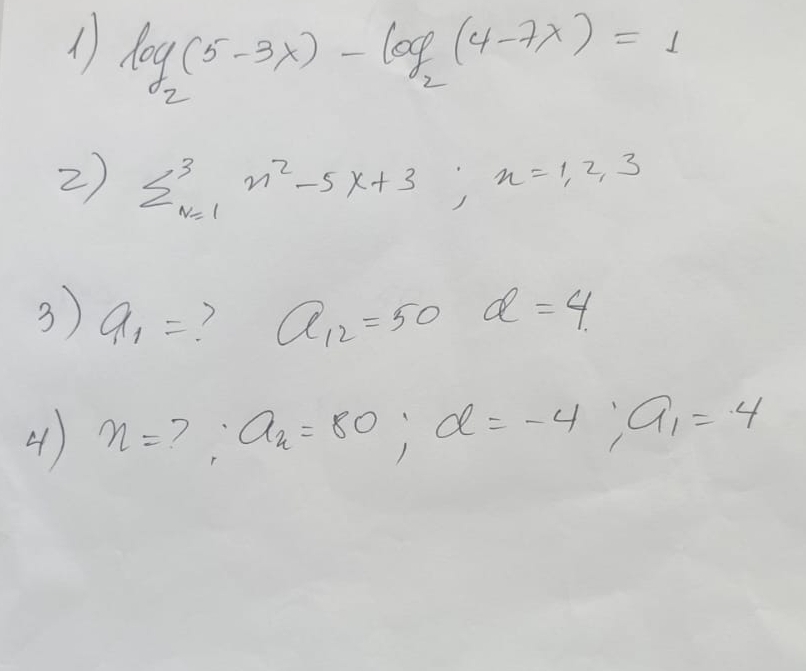 1) log₂(5-3x) - log₂(4-7x) = 1
2) Σ³ₙ₌₁ n²-5x+3 ; n=1,2,3
3) a₁ =? a₁₂=50 d=4
4) n=? ; aₙ=80 ; d=-4 ; a₁=4